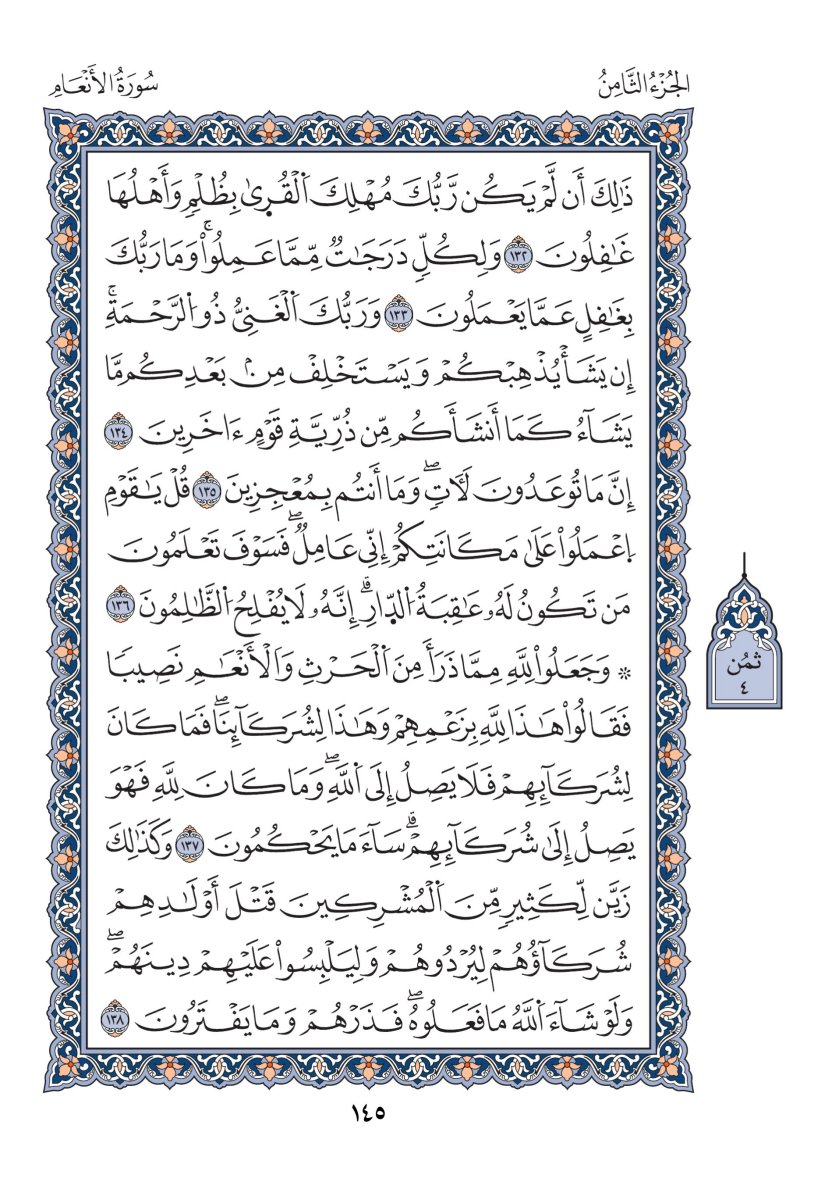 الجُزْءُ الثَّامِنُ
سُورَةُ الأَنْعَامِ
ذَٰلِكَ أَن لَّمْ يَكُن رَّبُّكَ مُهْلِكَ اَ۬لْقُر۪ىٰ بِظُلْمٖ وَأَهْلُهَا
غَٰفِلُونَۖ ١٣٢ وَلِكُلّٖ دَرَجَٰتٞ مِّمَّا عَمِلُواْۚ وَمَا رَبُّكَ
بِغَٰفِلٍ عَمَّا يَعْمَلُونَ ١٣٣ وَرَبُّكَ اَ۬لْغَنِيُّ ذُو اُ۬لرَّحْمَةِۚ
إِن يَشَأْ يُذْهِبْكُمْ وَيَسْتَخْلِفْ مِنۢ بَعْدِكُم مَّا
يَشَآءُ كَمَا أَنشَأَكُم مِّن ذُرِّيَّةِ قَوْمٍ ءَاخَرِينَ ١٣٤
إِنَّ مَا تُوعَدُونَ لَأٓتٖۖ وَمَا أَنتُم بِمُعْجِزِينَ ١٣٥ قُلْ يَٰقَوْمِ
اِ۪عْمَلُواْ عَلَىٰ مَكَانَتِكُمْ إِنِّي عَامِلٞۖ فَسَوْفَ تَعْلَمُونَ
مَن تَكُونُ لَهُۥ عَٰقِبَةُ اُ۬لدّ۪ارِۗ إِنَّهُۥ لَا يُفْلِحُ اُ۬لظَّٰلِمُونَ ١٣٦
۞ وَجَعَلُواْ لِلهِ مِمَّا ذَرَأَ مِنَ اَ۬لْحَرْثِ وَالْأَنْعَٰمِ نَصِيبٗا
فَقَالُواْ هَٰذَا لِلهِ بِزَعْمِهِمْ وَهَٰذَا لِشُرَكَآئِنَاۖ فَمَا كَانَ
لِشُرَكَآئِهِمْ فَلَا يَصِلُ إِلَى اَ۬للَّهِۖ وَمَا كَانَ لِلهِ فَهْوَ
يَصِلُ إِلَىٰ شُرَكَآئِهِمْۗ سَآءَ مَا يَحْكُمُونَ ١٣٧ وَكَذَٰلِكَ
زَيَّن لِّكَثِيرٖ مِّنَ اَ۬لْمُشْرِكِينَ قَتْلَ أَوْلَٰدِهِمْ
شُرَكَآؤُهُمْ لِيُرْدُوهُمْ وَلِيَلْبِسُواْ عَلَيْهِمْ دِينَهُمْۖ
وَلَوْ شَآءَ اَ۬للَّهُ مَا فَعَلُوهُۖ فَذَرْهُمْ وَمَا يَفْتَرُونَ ١٣٨
ثمُن
٤
١٤٥